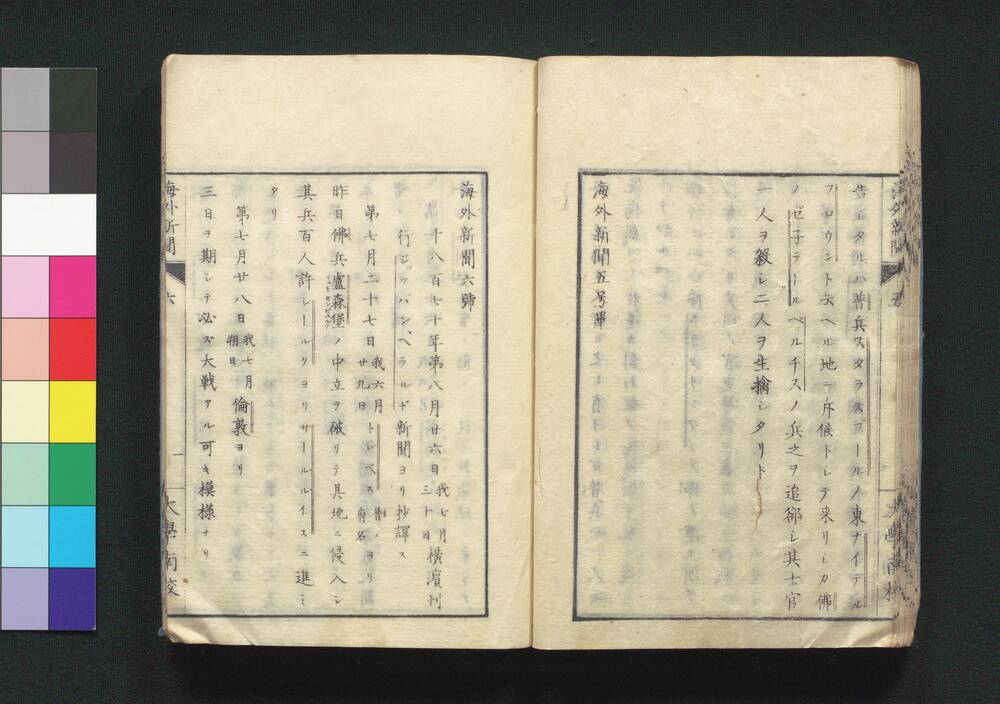 告ケタルハ普兵スタラスブールノ東ナイデル
フロウント云ヘル地ニ斥候トシテ来リシカ佛
ノゼ子ラールベルチスノ兵之ヲ追郤シ其士官
一人ヲ殺シ二人ヲ生擒シタリト
海外新聞五号畢
海外新聞六號
千八百七十年第八月廿六日我七月三十日横濱刊
行ジャッパン、ヘラルド新聞ヨリ抄譯ス
第七月二十七日我六月廿九日トレベス普ノ有名ヨリ
昨日佛兵盧森堡ノ中立ヲ破リテ其地ニ侵入シ
其兵百人許シールリヨリサールルイスニ進ミ
タリ
第七月廿八日我七月朔日倫敦ヨリ
三日ヲ期シテ必ズ大戦アル可キ模様ナリ
海外新聞
六
一
大學南校